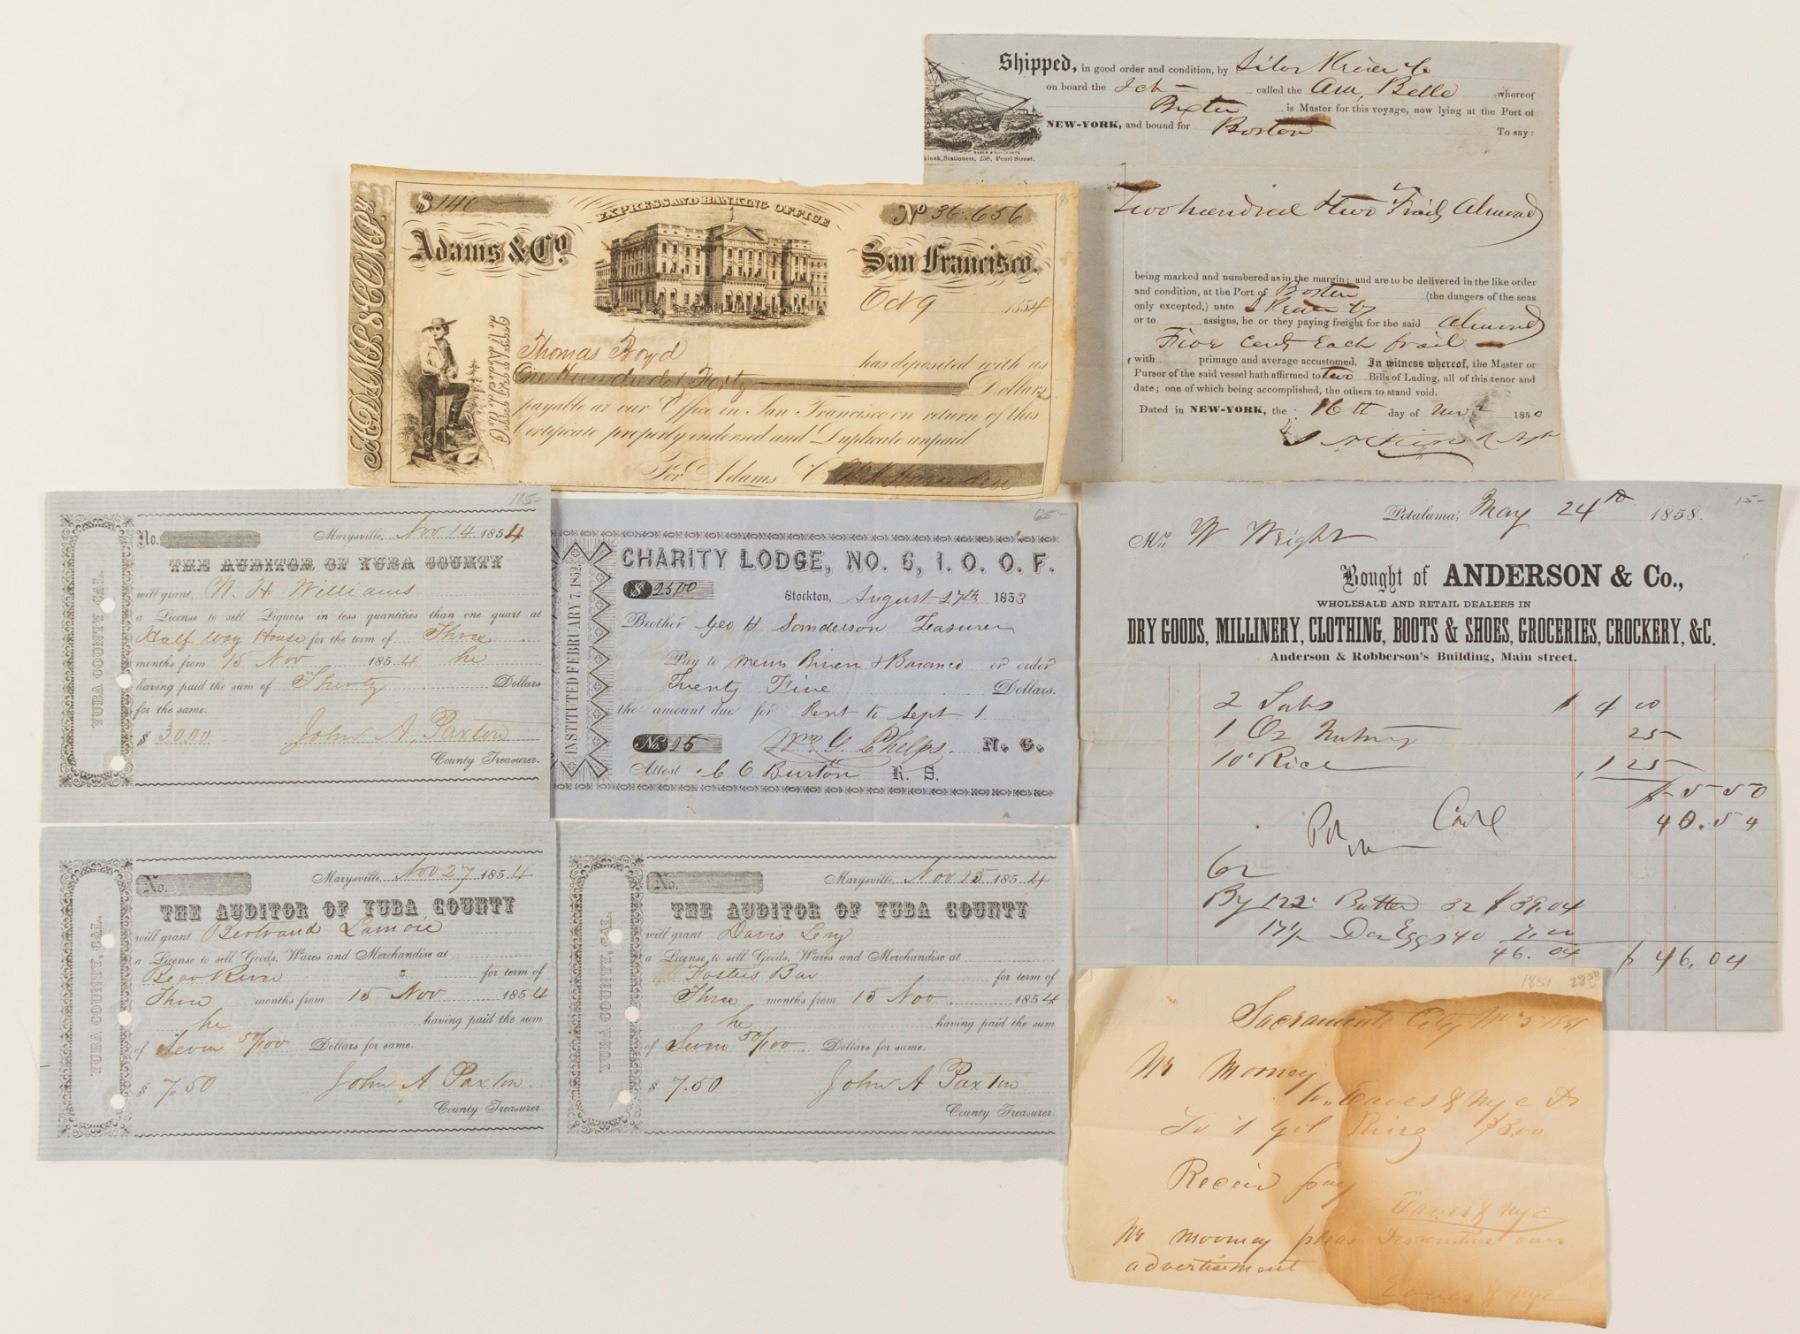 Shipped, in good order and condition, by
on board the Sch called the Ann Belle whereof
Baxter is Master for this voyage, now lying at the Port of
NEW-YORK, and bound for Boston To say:
Stationers, 158, Pearl Street.
Two hundred & two Frails Almonds
being marked and numbered as in the margin; and are to be delivered in the like order
and condition, at the Port of Boston (the dangers of the seas
only excepted,) unto
or to assigns, he or they paying freight for the said Almonds
Five cents Each frail
with primage and average accustomed. In witness whereof, the Master or
Purser of the said vessel hath affirmed to two Bills of Lading, all of this tenor and
date; one of which being accomplished, the others to stand void.
Dated in NEW-YORK, the 16th day of Novr 1850
ADAMS & CO.
$ 140
EXPRESS AND BANKING OFFICE
No 36.656
Adams & Co. San Francisco.
Oct 9 1854
Thomas Boyd has deposited with us
One Hundred & Forty Dollars
payable at our Office in San Francisco on return of this
Certificate properly endorsed and Duplicate unpaid
For Adams & Co
165-
YUBA COUNTY, CAL.
No.
Marysville, Nov 14 1854
THE AUDITOR OF YUBA COUNTY
will grant W. H Williams
a License to sell Liquors in less quantities than one quart at
Half Way House for the term of Three
months from 15 Nov 1854 he
having paid the sum of Thirty Dollars
for the same.
$ 30.00 John A. Paxton
County Treasurer.
65-
INSTITUTED FEBRUARY 7, 1852.
CHARITY LODGE, NO. 6, I. O. O. F.
$ 25.00
Stockton, August 27th 1853
Brother Geo H Sanderson Teasurer
Pay to Messrs or order
Twenty Five Dollars.
the amount due for Rent to Sept 1.
No. 25 Wm G. Phelps. N. G.
Attest C C Burton R. S.
15-
Petaluma, May 24th 1858.
Mr. W Wright
Bought of ANDERSON & Co.,
WHOLESALE AND RETAIL DEALERS IN
DRY GOODS, MILLINERY, CLOTHING, BOOTS & SHOES, GROCERIES, CROCKERY, &C.
Anderson & Robberson's Building, Main street.
2 Tubs $ 4 00
1 Oz Nutmeg 25
10 Rice 1 25
$ 5 50
40.54
Cash
Cr
By 122 Butter 32 $ 39.04
17½ Doz Eggs 40 7.00
46.04 $ 46.04
YUBA COUNTY, CAL.
No.
Marysville, Nov 27 1854
THE AUDITOR OF YUBA COUNTY
will grant Bertrand Lamoie
a License to sell Goods, Wares and Merchandise at
Bear River for term of
Three months from 15 Nov 1854
he having paid the sum
of Seven 50/100 Dollars for same.
$ 7.50 John A Paxton.
County Treasurer.
YUBA COUNTY, CAL.
No.
Marysville, Nov 15 1854
THE AUDITOR OF YUBA COUNTY
will grant Davis Levy
a License to sell Goods, Wares and Merchandise at
Fosters Bar for term of
Three months from 15 Nov 1854
he having paid the sum
of Seven 50/100 Dollars for same.
$ 7.50 John A Paxton
County Treasurer.
1851
Sacramento City
Mr Mooney
To Eaves & Nye Dr
To 1 gol Ring $8.00
Receivd pay
Eaves & Nye
Mr Mooney pleas Discontinue our
advertisement
Eaves & Nye